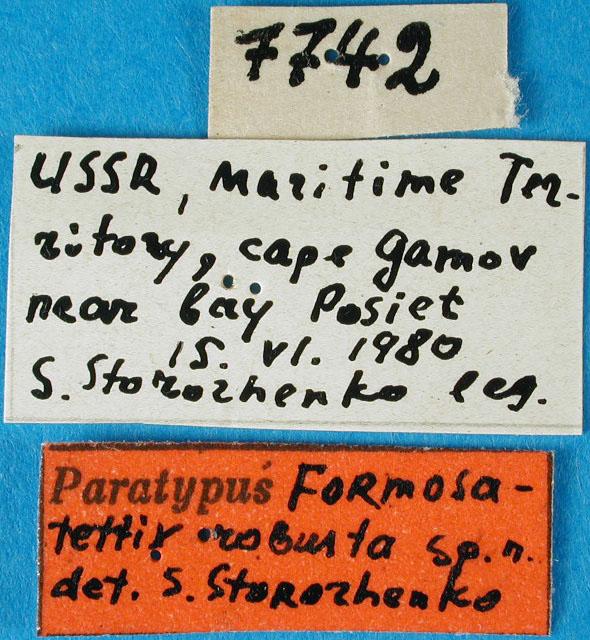 7742
USSR, Maritime Ter-
ritory, cape Gamov
near bay Posiet
15. VI. 1980
S. Storozhenko leg.
Paratypus Formosa-
tettix robusta sp. n.
det. S. Storozhenko